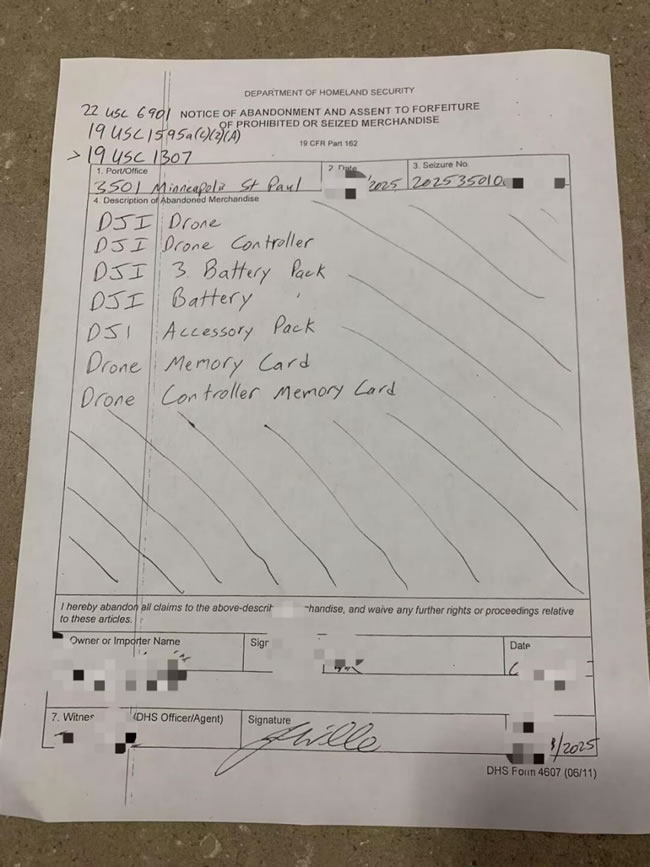 DEPARTMENT OF HOMELAND SECURITY
22 USC 6901 NOTICE OF ABANDONMENT AND ASSENT TO FORFEITURE
19 USC 1595a(c)(2)(A) OF PROHIBITED OR SEIZED MERCHANDISE
> 19 USC 1307 19 CFR Part 162
1. Port/Office 2. Date 3. Seizure No.
3501 Minneapolis St Paul /2025 202535010
4. Description of Abandoned Merchandise
DJI Drone
DJI Drone Controller
DJI 3 Battery Pack
DJI Battery
DJI Accessory Pack
Drone Memory Card
Drone Controller Memory Card
I hereby abandon all claims to the above-descri handise, and waive any further rights or proceedings relative
to these articles.
Owner or Importer Name Sign Date
7. Witnes (DHS Officer/Agent) Signature
/2025
DHS Form 4607 (06/11)